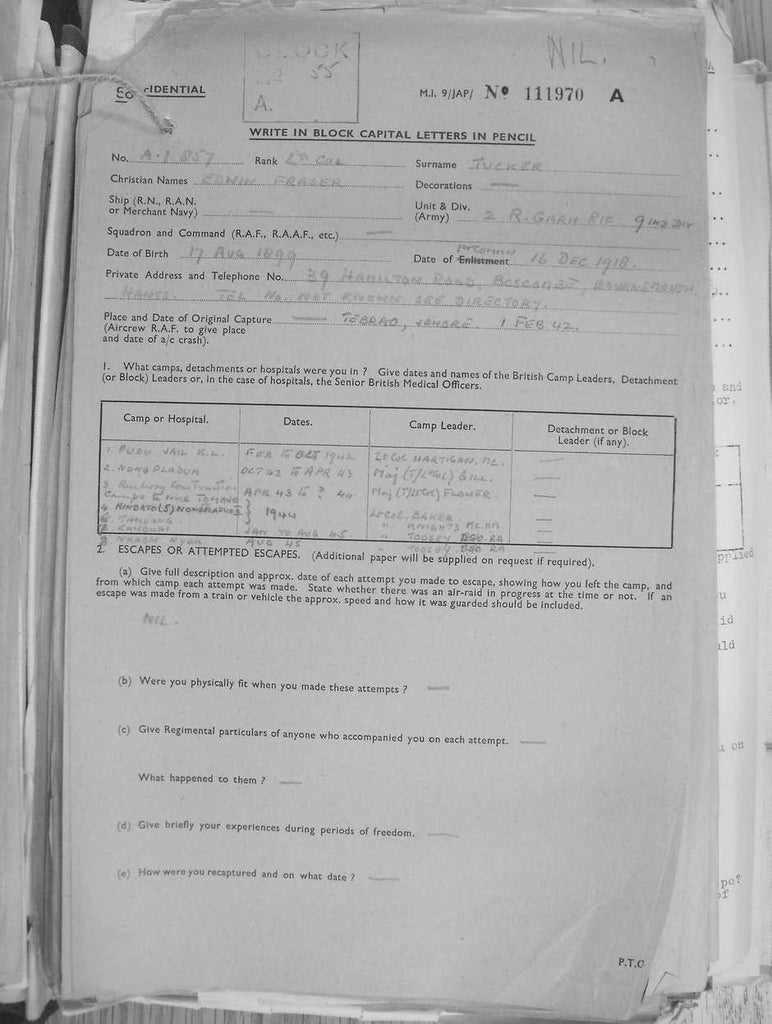 BLOCK
Nº 55
A.
NIL.
CONFIDENTIAL
M.I. 9/JAP/ Nº 111970 A
WRITE IN BLOCK CAPITAL LETTERS IN PENCIL
No. A.I 857 Rank LT COL Surname TUCKER
Christian Names EDWIN FRASER Decorations —
Ship (R.N., R.A.N. or Merchant Navy) — Unit & Div. (Army) 2 R. GARH RIF 9 IND DIV
Squadron and Command (R.A.F., R.A.A.F., etc.) —
Date of Birth 17 AUG 1899 Date of Enlistment 16 DEC 1918.
Private Address and Telephone No. 39 HAMILTON ROAD, BOSCOMBE, BOURNEMOUTH
HANTS. TEL No. NOT KNOWN SEE DIRECTORY.
Place and Date of Original Capture — TEBRAO, JOHORE. 1 FEB 42.
(Aircrew R.A.F. to give place
and date of a/c crash).
1. What camps, detachments or hospitals were you in ? Give dates and names of the British Camp Leaders, Detachment
(or Block) Leaders or, in the case of hospitals, the Senior British Medical Officers.
Camp or Hospital. Dates. Camp Leader. Detachment or Block Leader (if any).
1. PUDU JAIL K.L. FEB TO OCT 1942 Lt Col HARTIGAN, MC. —
2. NONG PLADUK OCT 42 TO APR 43 Maj (T/Lt Col) GILL. —
3. Railway Construction
Camps to TOMAJO APR 43 TO ? 44 Maj (T/Lt Col) FLOWER. —
4. KINDAIYO (5) NONGPRADUK II } 1944 Lt Col. BAKER. —
6. TAMUANG " KNIGHTS MC RA
7. KANBURI JAN TO AUG 45 " TOOSEY DSO RA —
8 NAKON NYOK AUG 45 " TOOSEY DSO RA
2. ESCAPES OR ATTEMPTED ESCAPES. (Additional paper will be supplied on request if required).
(a) Give full description and approx. date of each attempt you made to escape, showing how you left the camp, and
from which camp each attempt was made. State whether there was an air-raid in progress at the time or not. If an
escape was made from a train or vehicle the approx. speed and how it was guarded should be included.
NIL.
(b) Were you physically fit when you made these attempts ? —
(c) Give Regimental particulars of anyone who accompanied you on each attempt. —
What happened to them ? —
(d) Give briefly your experiences during periods of freedom. —
(e) How were you recaptured and on what date ? —
P.T.O